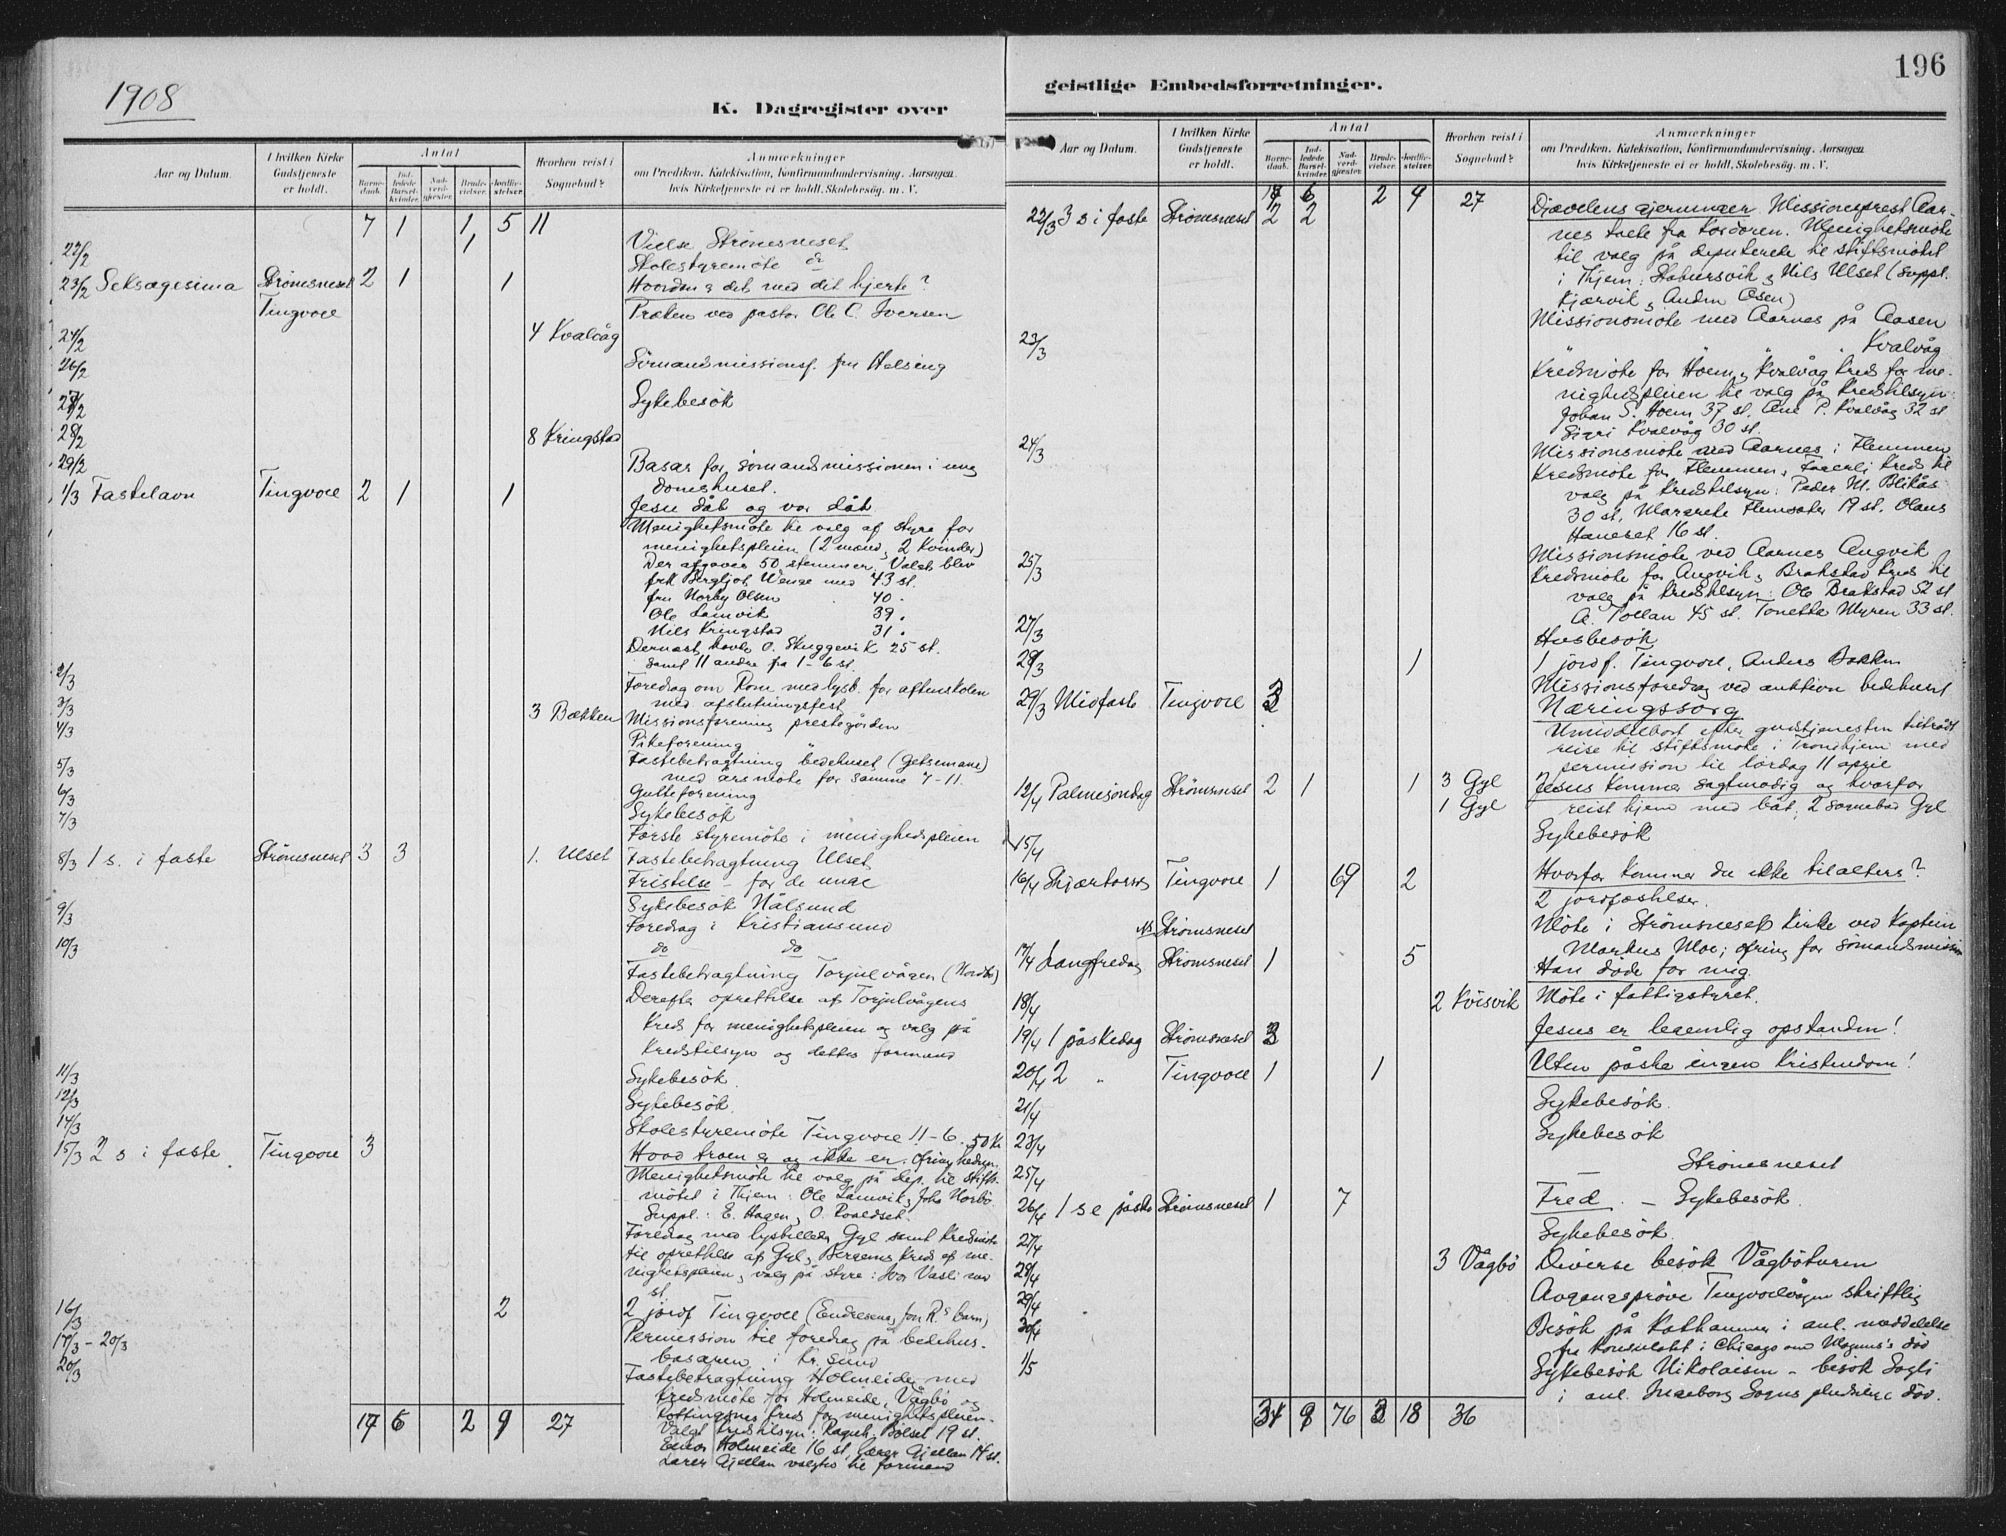 1908
K. Dagregister over
Aar og Datum.
I hvilken Kirke Gudstjeneste er holdt.
Antal
Barne-daab.
Ind-ledede Barsel-kvinder.
Nad-verd-gjester.
Brude-vielser.
Jordfæ-stelser.
Hvorhen reist i Sognebud?
Anmærkninger
om Prædiken. Katekisation, Konfirmandundervisning. Aarsagen
hvis Kirketjeneste ei er holdt. Skolebesøg. m. V.
7 1 1 5 11
22/2 1 Vielse Strömsneset
Skolestyremöte do
23/2 Seksagesima Strömsneset 2 1 1 Hvordan er det med dit hjerte?
Tingvoll Præken ved pastor Ole C. Iversen
24/2 4 Kvalvåg
26/2 Sömandsmissionsf. fru Helsing
27/2 Sykebesök
28/2 8 Kringstad
29/2 Basar for sömandsmissionen i ung
domshuset.
1/3 Fastelavn Tingvoll 2 1 1 Jesu dåb og vor dåb
Menighetsmöte til valg af styre for
menighetspleien (2 mænd, 2 kvinder)
Der afgaves 50 stemmer. Valgt blev
frk Bergljot Wenge med 43 st.
fru Norby Olsen 40 .
Ole Lamvik 39 .
Nils Kringstad 31 .
Dernæst havde O. Skuggevik 25 st.
samt 11 andre fra 1-6 st.
2/3 Foredrag om Rom med lysb. for aftenskolen
med afslutningsfest
3/3 3 Bækken Missionsforening prestegården
4/3 Pikeforening "
Fastebetragtning bedehuset (Getsemane)
5/3 med årsmöte for samme 7-11.
6/3 Gutteforening
7/3 Sykebesök
Förste styremöte i menighedspleien
8/3 1 s. i faste Strömsneset 3 3 1. Ulset Fastebetragtning Ulset
Fristelse - for de unge
9/3 Sykebesök Nålsund
Foredrag i Kristiansund
10/3 do do
Fastebetragtning Torjulvågen (Nordbö)
Derefter oprettelse af Torjulvågens
kreds for menighetspleien og valg på
kredstilsyn og dettes formand
11/3 Sykebesök.
12/3 Sykebesök.
14/3 Skolestyremöte Tingvoll 11-6. 50 kr
15/3 2 s i faste Tingvoll 3 Hvad troen er og ikke er. Ofring
Menighetsmöte til valg på dep. til stifts-
mötet i Thjem: Ole Lamvik, Johs Norbö
Suppl.: E. Hagen, O. Roaldset.
Foredrag med lysbilleder Gyl samt kredsmöte
til oprettelse af Gyl, Bergems kreds af me-
nighetspleien, valg på styre: Ivar Vasli
st.
16/3 2 2 jordf Tingvoll
17/3 - 20/3 Permission til foredrag på bedehus-
basaren i Kr. sund
20/3 Fastebetragtning Holmeide med
kredsmöte for Holmeide, Vågbö og
Rottingsnes kreds for menighetspleien.
Valgt kredstilsyn: Ragnh. Bölset 19 st.
Einar Holmeide 16 st, lærer Gjellan 14 st.
Lærer Gjellan valgtes til formand
17 6 2 9 27
196
geistlige Embedsforretninger.
Aar og Datum.
I hvilken Kirke Gudstjeneste er holdt.
Antal
Barne-daab.
Ind-ledede Barsel-kvinder.
Nad-verd-gjester.
Brude-vielser.
Jordfæ-stelser.
Hvorhen reist i Sognebud?
Anmærkninger
om Prædiken. Katekisation, Konfirmandundervisning. Aarsagen
hvis Kirketjeneste ei er holdt. Skolebesøg. m. V.
17 6 2 9 27
22/3 3 s i faste Strömsneset 2 2 Djævelens gjerninger Missionsprest Aar-
nes talte fra kordören. Menighetsmöte
til valg på deputerede til stiftsmötet
i Thjem: Stabursvik, Nils Ulset (Suppl.
Kjærvik, Anders Osen)
Missionsmöte med Aarnes på Aasen
23/3 " " " " Kvalvåg
Kredsmöte for Hoem, Kvalvåg kreds for me-
nighedspleien til valg på kredstilsyn:
Johan S. Hoem 37 st. Ane P. Kvalvåg 32 st
Sigri Kvalvåg 30 st.
24/3 Missionsmöte med Aarnes i Flemmen
Kredsmöte for Flemmen, Fagerli kreds til
valg på kredstilsyn: Peder M. Blikås
30 st, Margrete Flemsæter 19 st. Olaus
Haneset 16 st.
25/3 Missionsmöte ved Aarnes Angvik
Kredsmöte for Angvik, Brakstad kreds til
valg på kredstilsyn: Ole Brakstad 52 st
A. Tollan 45 st. Tonette Myren 33 st.
27/3 Husbesök
28/3 1 1 jordf. Tingvoll, Anders Bakken
Missionsforedrag ved auktion bedehuset
29/3 Midfaste Tingvoll 3 Næringssorg
Umiddelbart efter gudstjenesten tiltrådt
reise til stiftsmöte i Trondhjem med
permission til lördag 11 april
12/4 Palmesöndag Strömsneset 2 1 1 3 Gyl Jesus kommer sagtmodig og hvorfor
1 Gyl reist hjem med båt, 2 sognebud Gyl
15/4 Sykebesök
16/4 Skjærtorsd Tingvoll 1 69 2 Hvorfor kommer du ikke til alters?
2 jordfæstelser.
Ns Strömsneset Möte i Strömsneset kirke ved kaptein
Markus Moe; ofring for sömandsmission
17/4 Langfredag Strömsneset 1 5 Han döde for mig.
18/4 2 Kvisvik Möte i fattigstyret.
19/4 1 påskedag Strömsneset 3 Jesus er legemlig opstanden!
20/4 2 " Tingvoll 1 1 Uten påske ingen kristendom!
21/4 Sykebesök.
23/4 Sykebesök
25/4 — Strömsneset
26/4 1 s e påske Strömsneset 1 7 Fred. — Sykebesök.
27/4 Sykebesök.
28/4 3 Vågbö Diverse besök Vågböturen
29/4 Avgangspröve Tingvollvågen skriftlig
30/4 Besök på Kothammer i anl. meddelelse
fra konsulatet i Chicago om Magnus's död
1/5 Sykebesök Nikolaisen - besök Sogli
i anl. Ingeborg Sogns pludselige död.
34 9 76 3 18 36